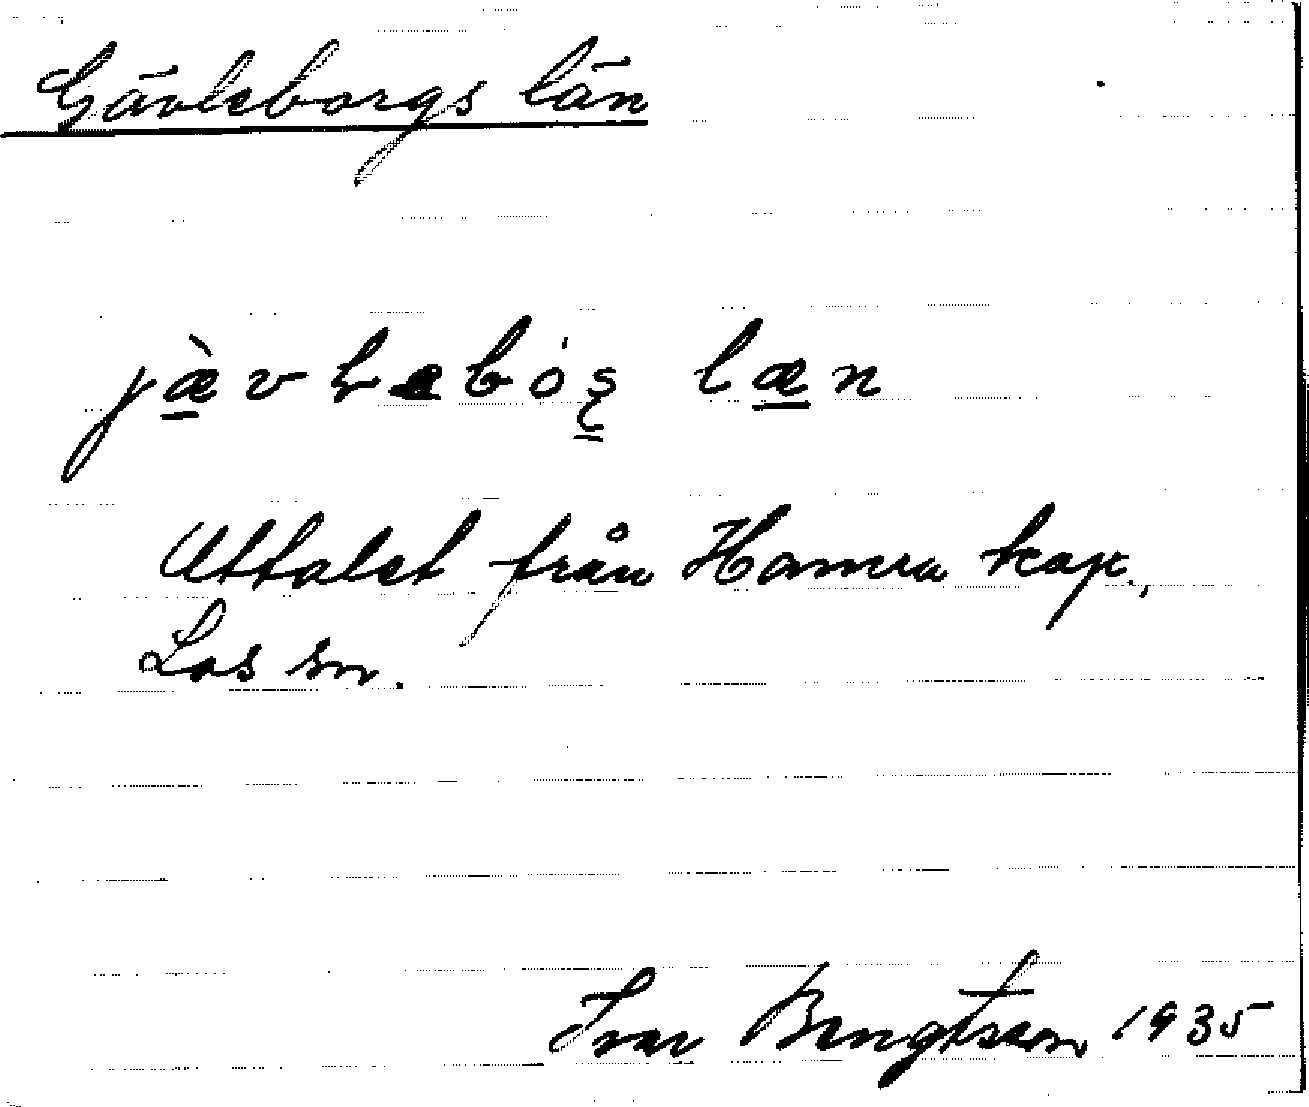 Gävleborgs län
jæ̀vlebós læn
Uttalet från Hamra kap.,
Los sn.
Ivar Bengtsson 1935